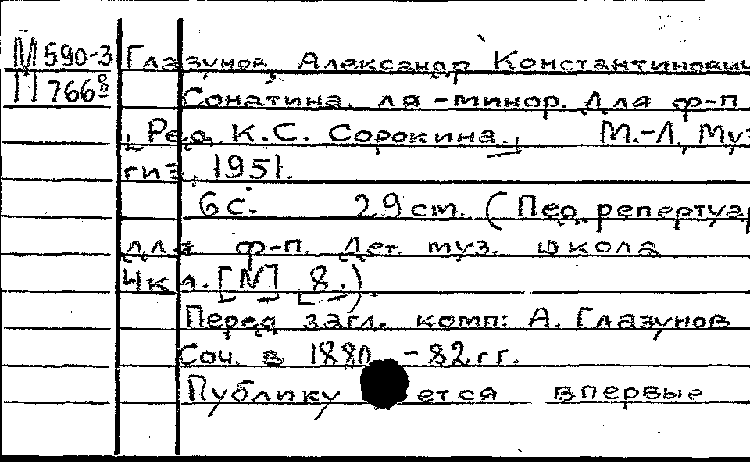 М590-3 Глазунов, Александр Константинович
П766⁸⁄₈ Сонатина. ля-минор. Для ф-п.
[Ред. К.С. Сорокина.] М.-Л, Муз
гиз, 1951.
6 с. 29 cm. (Пед. репертуар
для ф-п. Дет. муз. школа
4 кл. [№] [8.])
Перед загл. комп: А. Глазунов
Соч. в 1880 - 82 гг.
Публикуется впервые